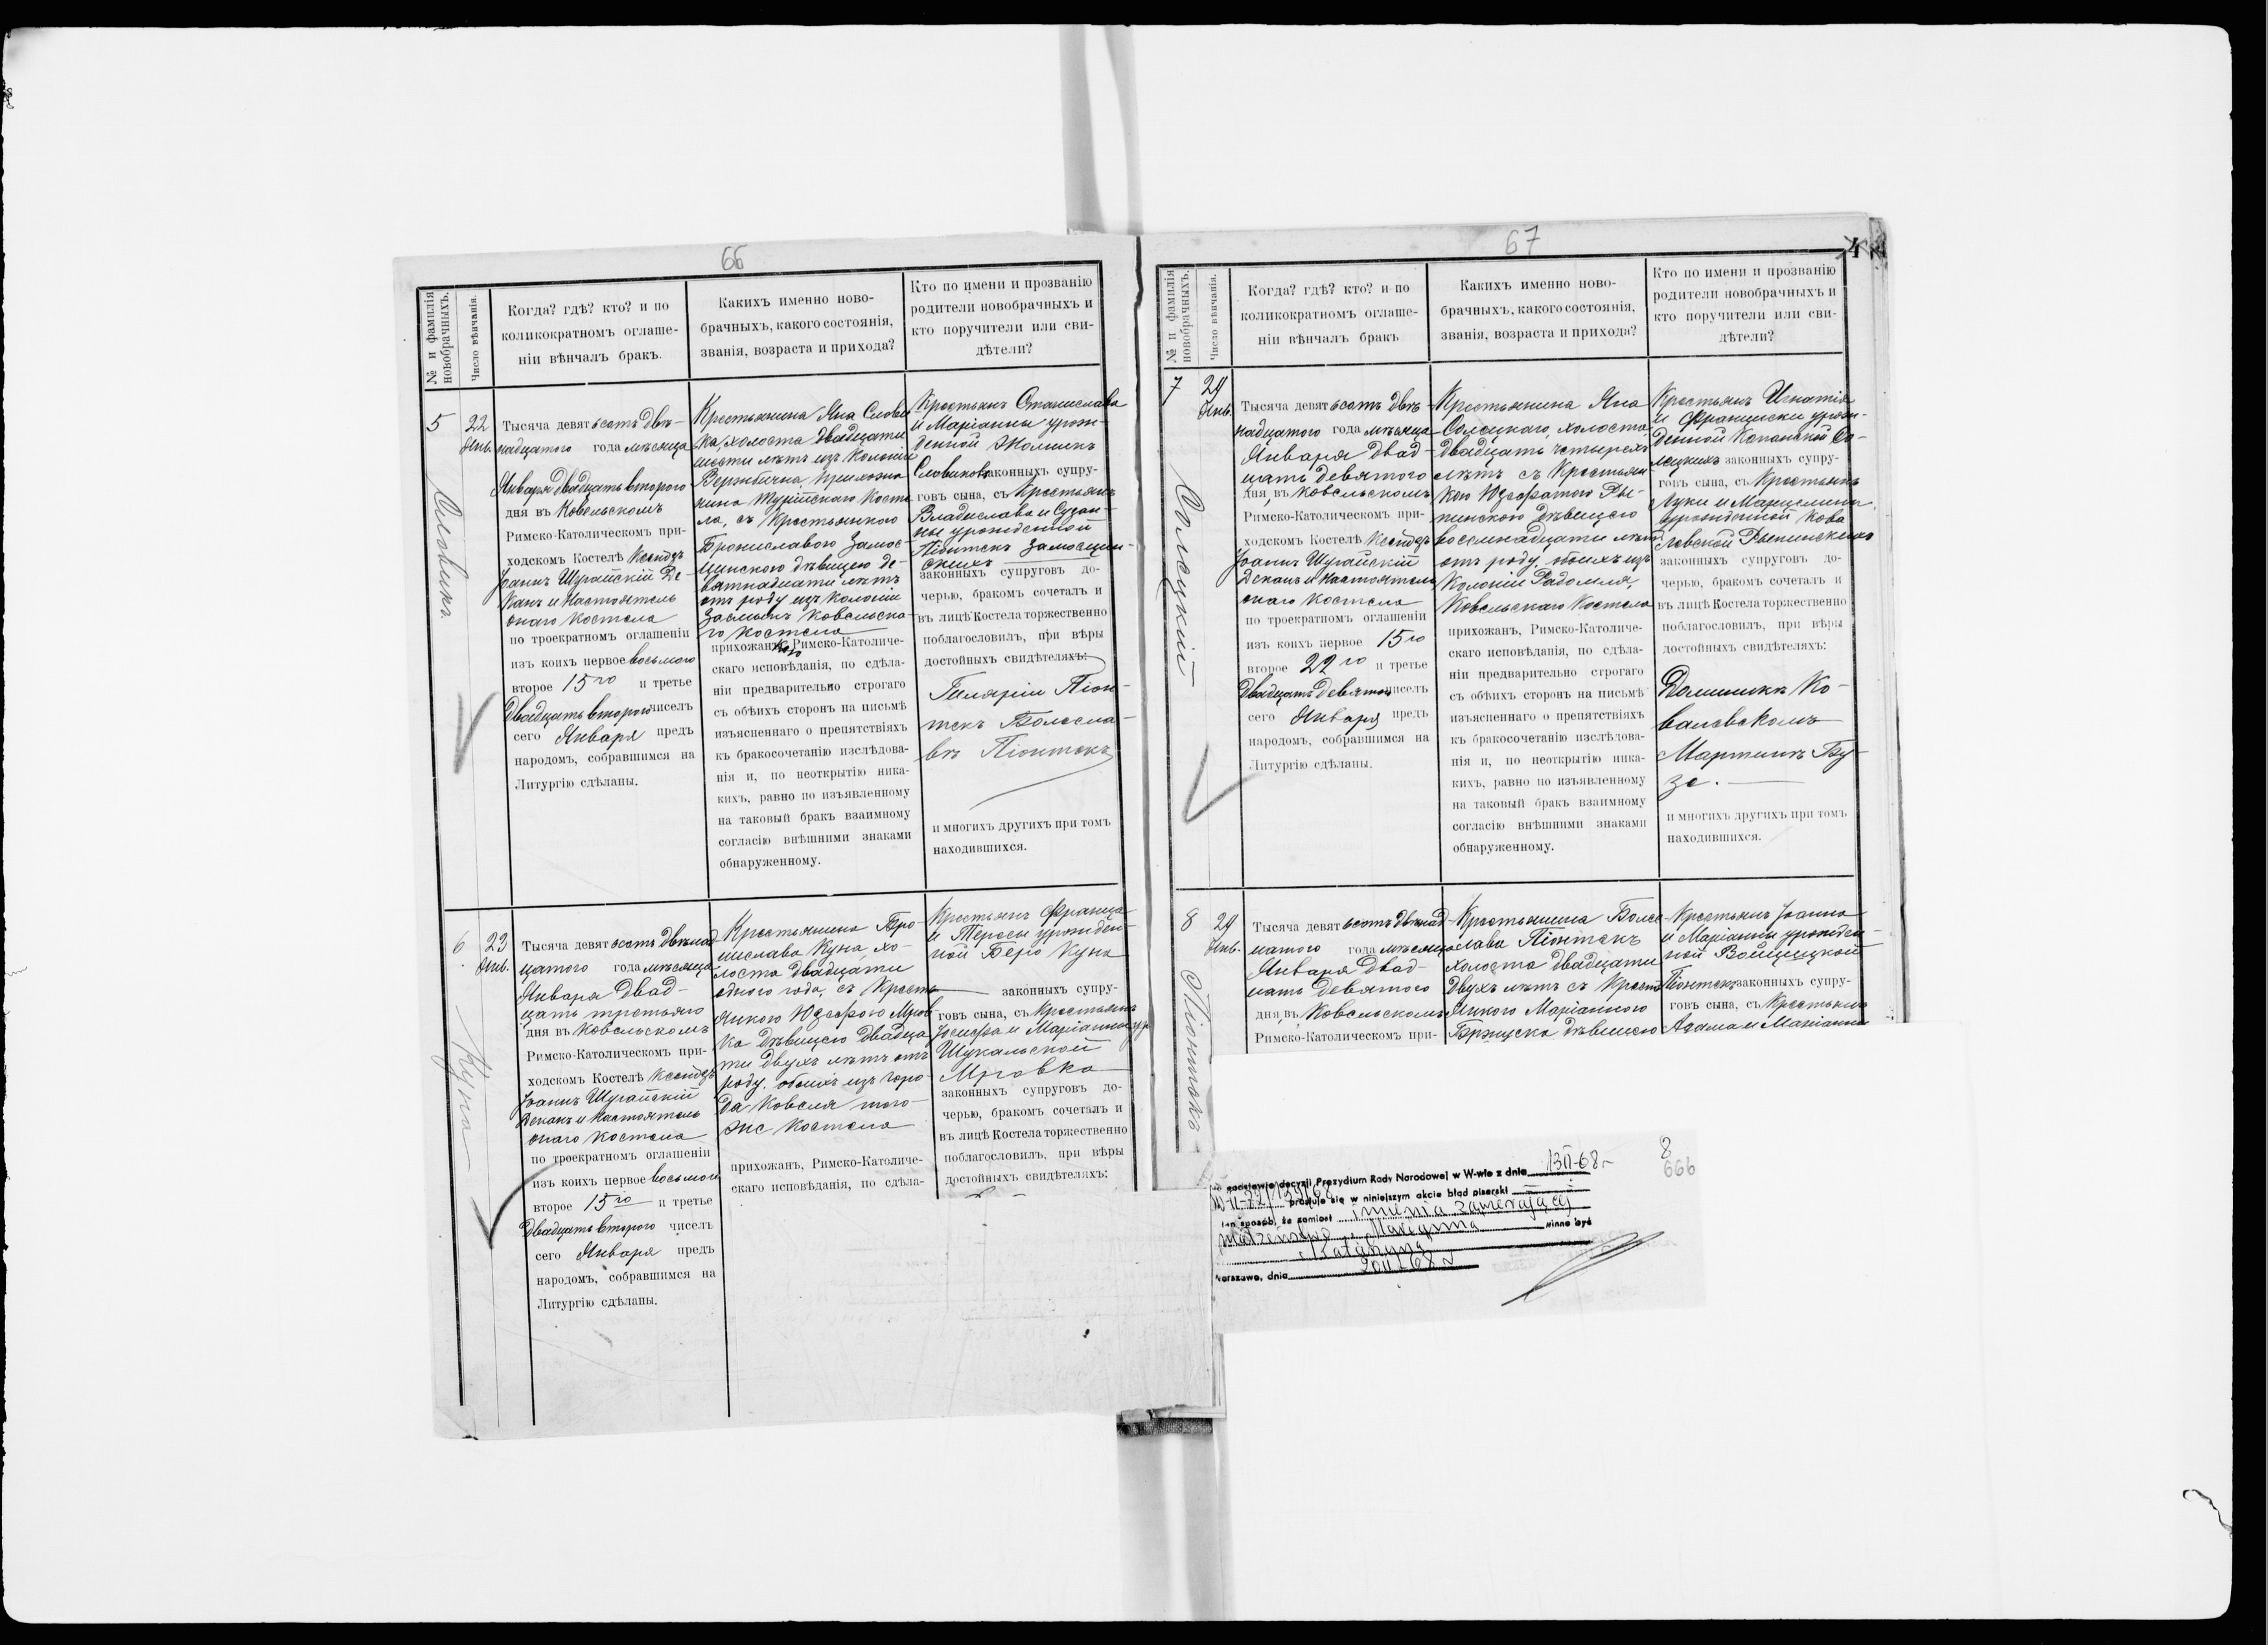 66
№ и фамилія новобрачныхъ.
Число вѣнчанія.
Когда? гдѣ? кто? и по
коликократномъ оглаше-
ніи вѣнчалъ бракъ.
Какихъ именно ново-
брачныхъ, какого состоянія,
званія, возраста и прихода?
Кто по имени и прозванію
родители новобрачныхъ и
кто поручители или сви-
дѣтели?
5
22
Янв.
Словикъ.
Тысяча девятьсотъ двѣ-
надцатого года мѣсяца
Января двадцать второго
дня въ Ковельскомъ
Римско-Католическомъ при-
ходскомъ Костелѣ Ксендзъ
Іоаннъ Шугайскій Де-
канъ и Настоятель
онаго Костела
по троекратномъ оглашеніи
изъ коихъ первое восьмого
второе 15го и третье
двадцать второго чиселъ
сего Января предъ
народомъ, собравшимся на
Литургію сдѣланы.
Крестьянина Яна Слови-
ка, холоста двадцати
шести лѣтъ изъ Колоніи
Вержбична, прихожа-
нина Турійскаго Косте-
ла, съ Крестьянкою
Брониславою Замос-
цинскою дѣвицею де-
вятнадцати лѣтъ
отъ роду изъ Колоніи
Засмыкъ Ковельска-
го Костела
прихожанкою Римско-Католиче-
скаго исповѣданія, по сдѣла-
ніи предварительно строгаго
съ обѣихъ сторонъ на письмѣ
изъясненнаго о препятствіяхъ
къ бракосочетанію изслѣдова-
нія и, по неоткрытію ника-
кихъ, равно по изъявленному
на таковый бракъ взаимному
согласію внѣшними знаками
обнаруженному.
Крестьянъ Станислава
и Маріанны урож-
денной
Словиковъ законныхъ супру-
говъ сына, съ Крестьянъ
Владислава и Сузан-
ны урожденной
Піонтекъ Замосцин-
скихъ
законныхъ супруговъ до-
черью, бракомъ сочеталъ и
въ лицѣ Костела торжественно
поблагословилъ, при вѣры
достойныхъ свидѣтеляхъ:
Гиляріи Піон-
текъ Болесла-
въ Піонтекъ
и многихъ другихъ при томъ
находившихся.
6
23
Янв.
Куна
Тысяча девятьсотъ двѣнад-
цатого года мѣсяца
Января двад-
цать третьяго
дня въ Ковельскомъ
Римско-Католическомъ при-
ходскомъ Костелѣ Ксендзъ
Іоаннъ Шугайскій
Деканъ и Настоятель
онаго Костела
по троекратномъ оглашеніи
изъ коихъ первое восьмого
второе 15го и третье
двадцать второго чиселъ
сего Января предъ
народомъ, собравшимся на
Литургію сдѣланы.
Крестьянина Бро-
нислава Куна, хо-
лоста двадцати
одного года, съ Кресть-
янкою Юзефою Мров-
ка дѣвицею двадца-
ти двухъ лѣтъ отъ
роду, обоихъ изъ горо-
да Ковеля того-
же Костела
прихожанъ, Римско-Католиче-
скаго исповѣданія, по сдѣла-
Крестьянъ Франца
и Терезы урожден-
ной Беро Куна
законныхъ супру-
говъ сына, съ Крестьянъ
Іосифа и Маріанны ур.
Шукальской
Мровка
законныхъ супруговъ до-
черью, бракомъ сочеталъ и
въ лицѣ Костела торжественно
поблагословилъ, при вѣры
достойныхъ свидѣтеляхъ:
67
4
№ и фамилія новобрачныхъ.
Число вѣнчанія.
Когда? гдѣ? кто? и по
коликократномъ оглаше-
ніи вѣнчалъ бракъ
Какихъ именно ново-
брачныхъ, какого состоянія,
званія, возраста и прихода?
Кто по имени и прозванію
родители новобрачныхъ и
кто поручители или сви-
дѣтели?
7
29
Янв.
Солецкій
Тысяча девятьсотъ двѣ-
надцатого года мѣсяца
Января двад-
цать девятого
дня, въ Ковельскомъ
Римско-Католическомъ при-
ходскомъ Костелѣ Ксендзъ
Іоаннъ Шугайскій
Деканъ и Настоятель
онаго Костела
по троекратномъ оглашеніи
изъ коихъ первое 15го
второе 22го и третье
двадцать девятого чиселъ
сего Января предъ
народомъ, собравшимся на
Литургію сдѣланы.
Крестьянина Яна
Солецкаго, холоста,
двадцать четырехъ
лѣтъ съ Крестьян-
кою Юзефатою Ры-
пинскою дѣвицею
восемнадцати лѣтъ
отъ роду, обоихъ изъ
Колоніи Радомля,
Ковельскаго Костела
прихожанъ, Римско-Католиче-
скаго исповѣданія, по сдѣла-
ніи предварительно строгаго
съ обѣихъ сторонъ на письмѣ
изъясненнаго о препятствіяхъ
къ бракосочетанію изслѣдова-
нія и, по неоткрытію ника-
кихъ, равно по изъявленному
на таковый бракъ взаимному
согласію внѣшними знаками
обнаруженному.
Крестьянъ Игнатія
и Франциски урож-
денной Копанской Со-
лецкихъ законныхъ супру-
говъ сына, съ Крестьянъ
Луки и Марцелины
урожденной Кова-
левской Рыпинскихъ
законныхъ супруговъ до-
черью, бракомъ сочеталъ и
въ лицѣ Костела торжественно
поблагословилъ, при вѣры
достойныхъ свидѣтеляхъ:
Доминикъ Ко-
валевскомъ
Мартинъ Бу-
зе.
и многихъ другихъ при томъ
находившихся.
8
29
Янв.
Піонтекъ
Тысяча девятьсотъ двѣнад-
цатого года мѣсяца
Января двад-
цать девятого
дня, въ Ковельскомъ
Римско-Католическомъ при-
Крестьянина Болес-
лава Піонтекъ
холоста двадцати
двухъ лѣтъ съ Кресть-
янкою Маріанною
дѣвицею
Крестьянъ Іоанна
и Маріанны урожден-
ной Войцицкой
Піонтекъ законныхъ супру-
говъ сына, съ Крестьянъ
Адама и Маріанны
podstawie decyzji Prezydium Rady Narodowej w W-wie z dnia 13 II-68 r
prostuje się w niniejszym akcie błąd pisarski
ten sposób, że zamiast imienia zawierającej
małżeństwo winno być
Katarzyna
Warszawa, dnia 20 II 68 r
8
666